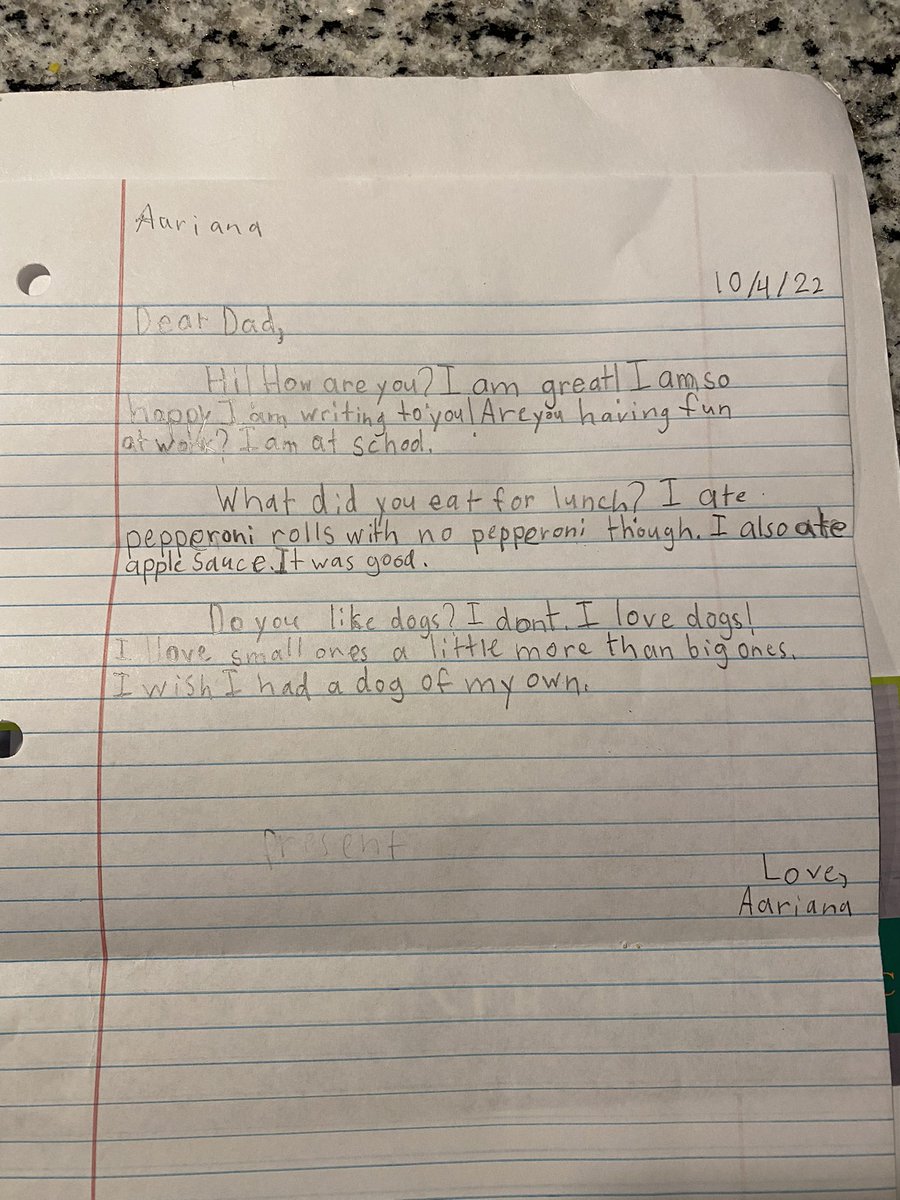 Aariana
10/4/22
Dear Dad,
Hi! How are you? I am great! I am so
happy I am writing to you! Are you having fun
at work? I am at school.
What did you eat for lunch? I ate
pepperoni rolls with no pepperoni though. I also ate
apple sauce. It was good.
Do you like dogs? I dont. I love dogs!
I love small ones a little more than big ones.
I wish I had a dog of my own.
Present
Love,
Aariana